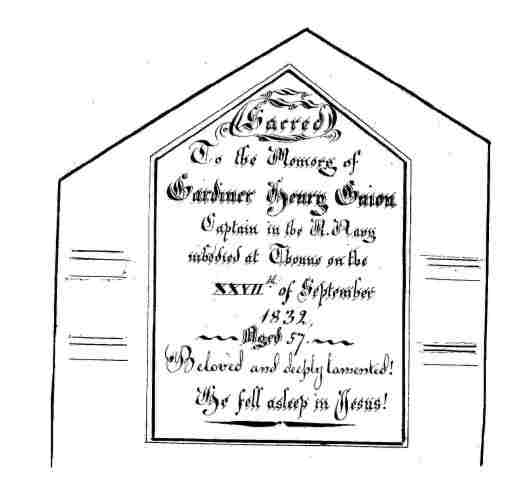 Sacred
To the Memory of
Gardiner Henry Guion
Captain in the R. Navy
who died at Thonne on the
XXVIIth of September
1832,
Aged 57.
Beloved and deeply lamented!
He fell asleep in Jesus!